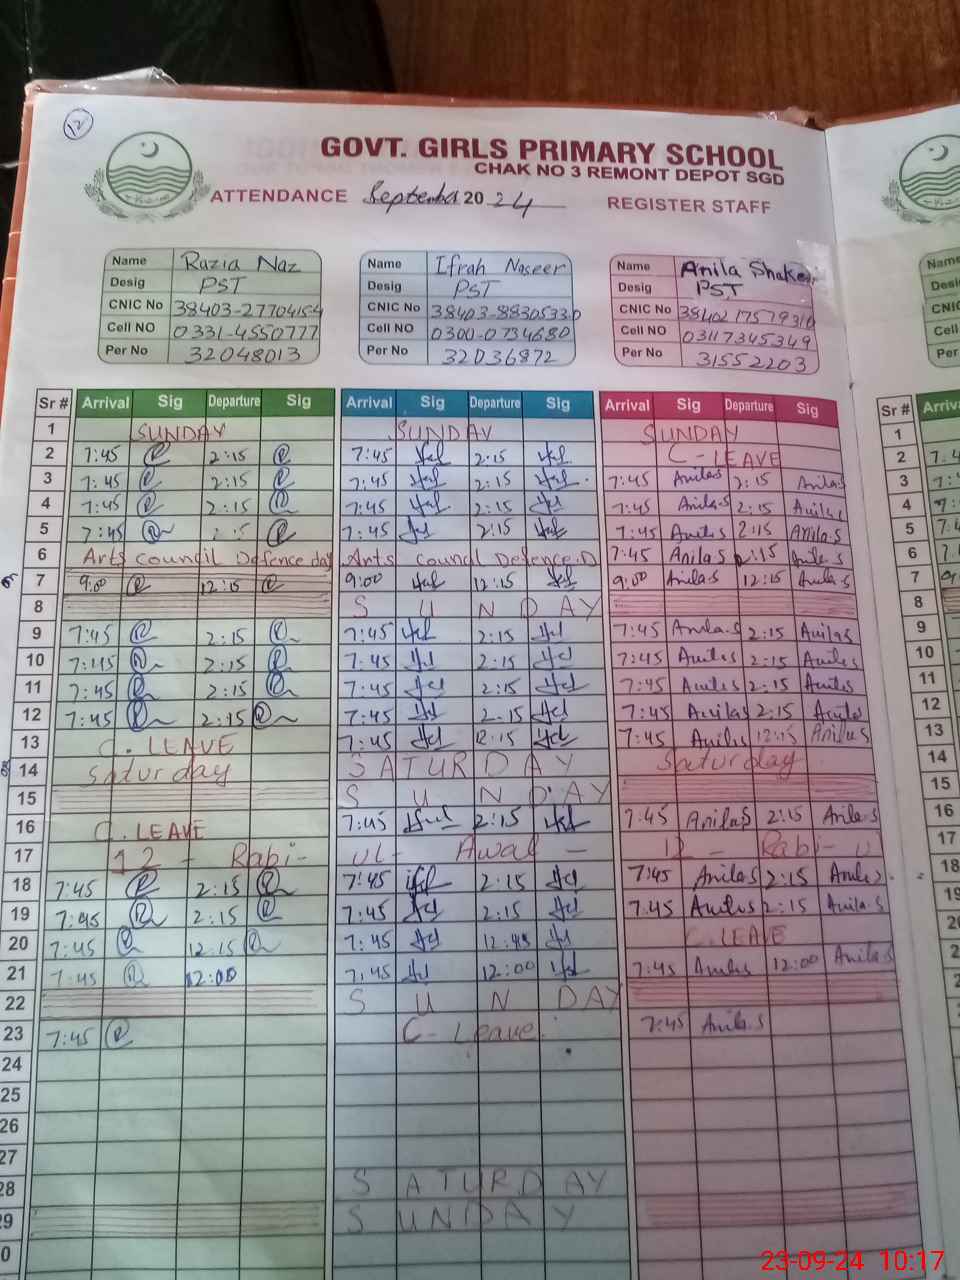 12
GOVT. GIRLS PRIMARY SCHOOL
CHAK NO 3 REMONT DEPOT SGD
ATTENDANCE September 2024 REGISTER STAFF
Name Razia Naz Name Ifrah Naseer Name Anila Shakeel Name
Desig PST Desig PST Desig PST
CNIC No 38403-27704154 CNIC No 38403-8830533-0 CNIC No 3840217579316 CNIC
Cell NO 0331-4550777 Cell NO 0300-0734680 Cell NO 03117345349 Cell
Per No 32048013 Per No 32036872 Per No 31552203 Per
Sr # Arrival Sig Departure Sig Arrival Sig Departure Sig Arrival Sig Departure Sig Sr #
1 SUNDAY SUNDAY SUNDAY 1
2 7:45 2:15 7:45 2:15 C-LEAVE 2
3 7:45 2:15 7:45 2:15 7:45 Anilas 2:15 Anilas 3
4 7:45 2:15 7:45 2:15 7:45 Anilas 2:15 Anilas 4
5 7:45 2:15 7:45 2:15 7:45 Anilas 2:15 Anilas 5
6 Arts council Defence day Arts Council Defence.D 7:45 Anilas 2:15 Anilas 6
7 9:00 12:15 9:00 12:15 9:00 Anila.s 12:15 Anila.s 7
8 SUNDAY 8
9 7:45 2:15 7:45 2:15 7:45 Anila.s 2:15 Anilas 9
10 7:45 2:15 7:45 2:15 7:45 Anilas 2:15 Anilas 10
11 7:45 2:15 7:45 2:15 7:45 Anilas 2:15 Anilas 11
12 7:45 2:15 7:45 2:15 7:45 Anilas 2:15 Anilas 12
13 C. LEAVE 7:45 12:15 7:45 Anilas 12:15 Anilas 13
14 Saturday SATURDAY Saturday 14
15 SUNDAY 15
16 C. LEAVE 7:45 2:15 7:45 Anilas 2:15 Anila.s 16
17 12 - Rabi- ul- Awal - 12 - Rabi- u 17
18 7:45 2:15 7:45 2:15 7:45 Anilas 2:15 Anilas 18
19 7:45 2:15 7:45 2:15 7:45 Anilas 2:15 Anila.s 19
20 7:45 12:15 7:45 12:45 C.LEAVE
21 7:45 12:00 7:45 12:00 7:45 Anilas 12:00 Anilas
22 SUNDAY
23 7:45 C-Leave 7:45 Anila.s
24
25
26
27
28 SATURDAY
29 SUNDAY
23-09-24 10:17